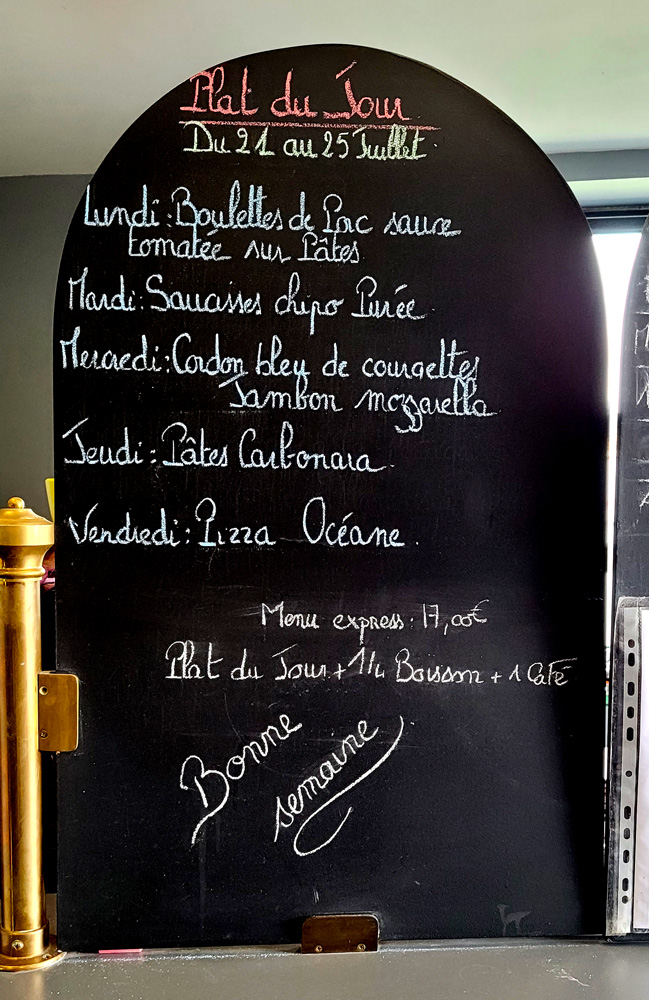 Plat du Jour
Du 21 au 25 Juillet.
Lundi : Boulettes de Porc sauce
tomatée sur Pâtes
Mardi : Saucisses chipo Purée.
Mercredi : Cordon bleu de courgettes
Jambon mozzarella
Jeudi : Pâtes Carbonara.
Vendredi : Pizza Océane.
Menu express : 17,00€
Plat du Jour + 1/4 Boisson + 1 Café
Bonne
semaine